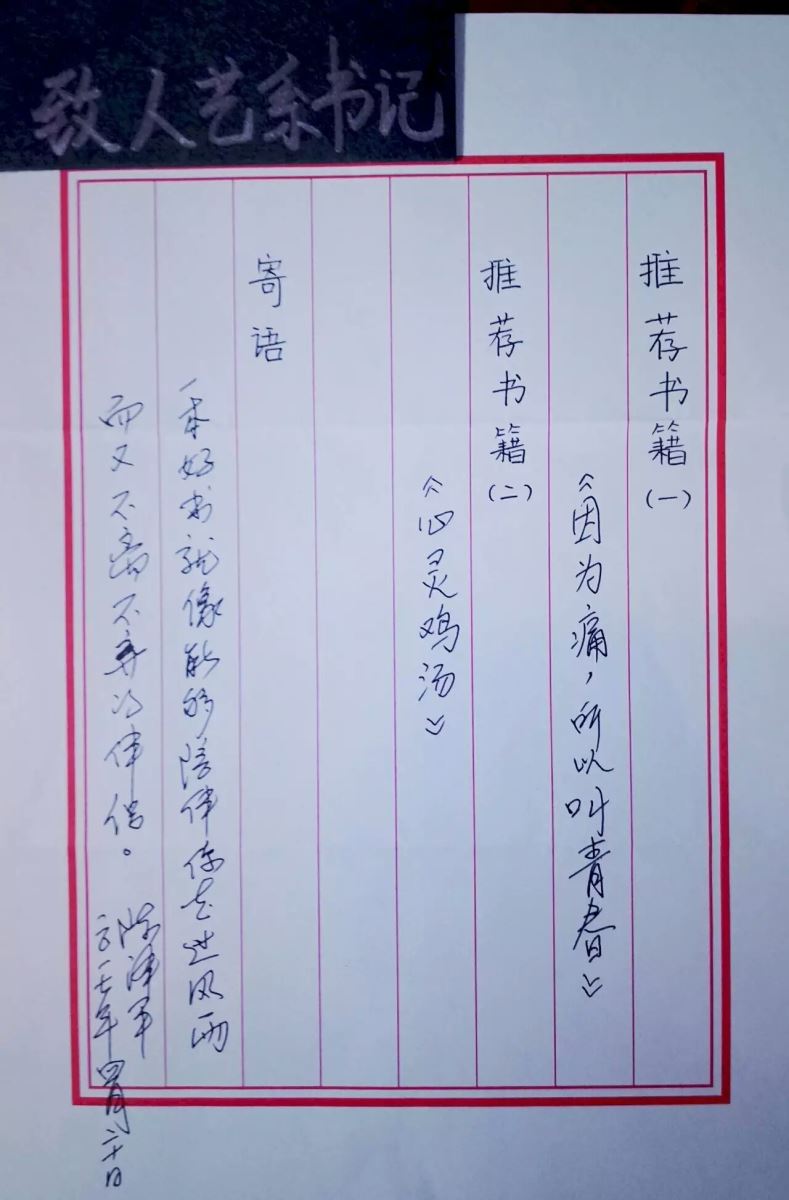 致人艺系书记
推荐书籍(一)
《因为痛，所以叫青春》
推荐书籍(二)
《心灵鸡汤》
寄语
一本好书就像能够陪伴你走过风雨
而又不离不弃的伴侣。
陈泽军
二〇一七年四月二十日